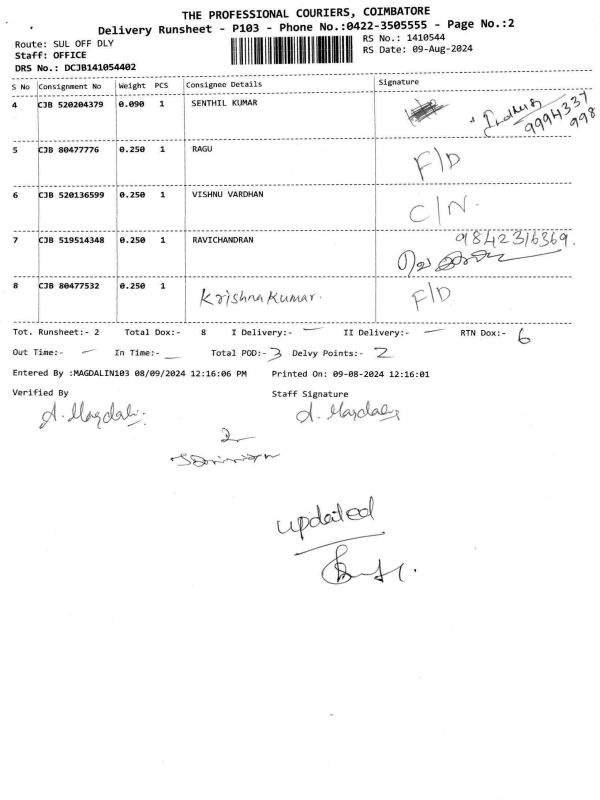 THE PROFESSIONAL COURIERS, COIMBATORE
Delivery Runsheet - P103 - Phone No.:0422-3505555 - Page No.:2
Route: SUL OFF DLY
RS No.: 1410544
Staff: OFFICE
RS Date: 09-Aug-2024
DRS No.: DCJB141054402
S No Consignment No Weight PCS Consignee Details Signature
4 CJB 520204379 0.090 1 SENTHIL KUMAR
9994337
998
5 CJB 80477776 0.250 1 RAGU F/D
6 CJB 520136599 0.250 1 VISHNU VARDHAN C/N.
7 CJB 519514348 0.250 1 RAVICHANDRAN 9842316369.
8 CJB 80477532 0.250 1 Krishna Kumar. F/D
Tot. Runsheet:- 2 Total Dox:- 8 I Delivery:- — II Delivery:- — RTN Dox:- 6
Out Time:- — In Time:- — Total POD:- 3 Delvy Points:- 2
Entered By :MAGDALIN103 08/09/2024 12:16:06 PM Printed On: 09-08-2024 12:16:01
Verified By Staff Signature
updated